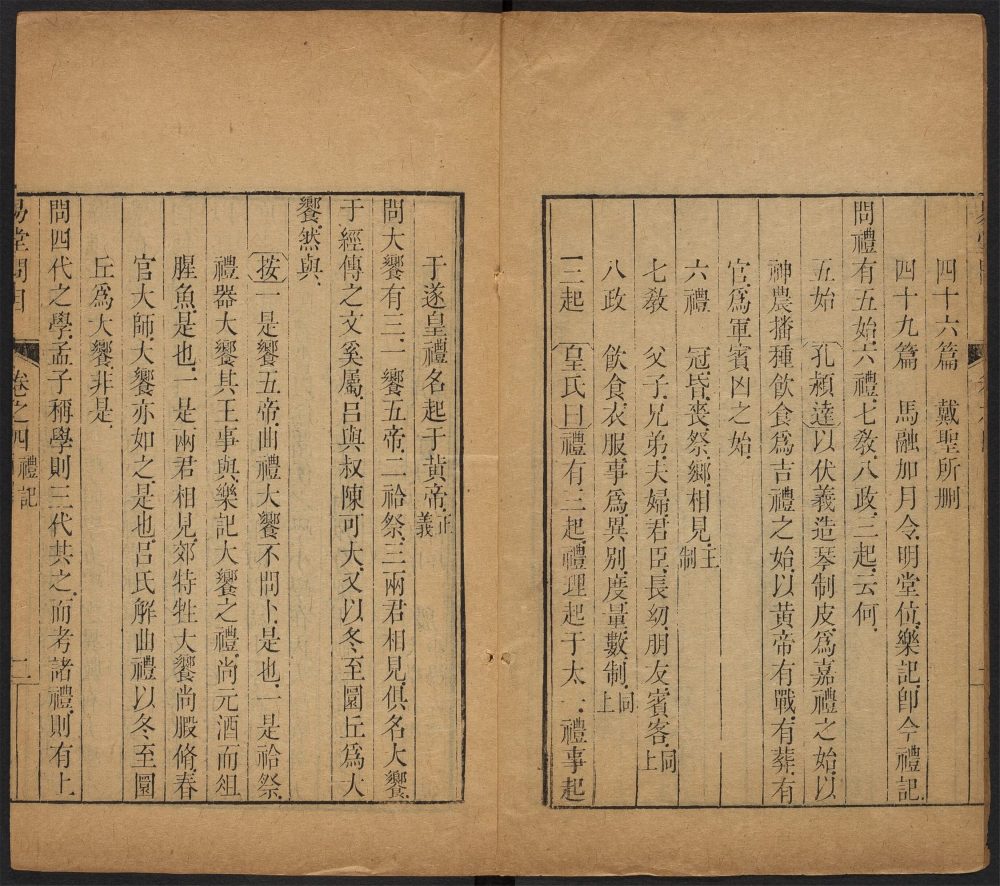 四十六篇　戴聖所刪
四十九篇　馬融加月令明堂位樂記卽今禮記
問禮有五始六禮七敎八政三起云何
五始　孔頴達以伏義造琴制皮爲嘉禮之始以
神農播種飲食爲吉禮之始以黃帝有戰有葬有
官爲軍賓凶之始
六禮　冠昏喪祭鄉相見王制
七敎　父子兄弟夫婦君臣長幼朋友賓客同上
八政　飲食衣服事爲異別度量數制同上
三起　皇氏曰禮有三起禮理起于太一禮事起
于遂皇禮名起于黃帝正義
問大饗有三一饗五帝二祫祭三兩君相見俱名大饗
于經傳之文奚屬呂與叔陳可大又以冬至圜丘爲大
饗然與
按一是饗五帝曲禮大饗不問卜是也一是祫祭
禮器大饗其王事與樂記大饗之禮尚元酒而俎
腥魚是也一是兩君相見郊特牲大饗尚腶脩春
官大師大饗亦如之是也呂氏解曲禮以冬至圜
丘爲大饗非是
問四代之學孟子稱學則三代共之而考諸禮則有上
易堂問目
卷之四禮記
二